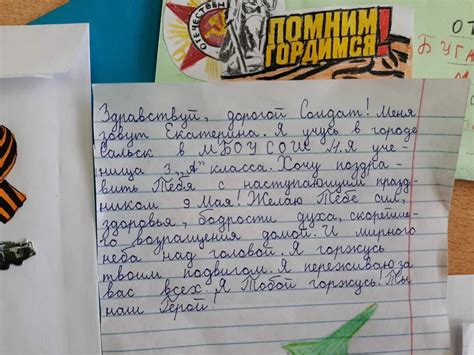 ОТЕЧЕСТВЕН
ПОМНИМ
ГОРДИМСЯ!
ОТ
БУГА
Здравствуй, дорогой Солдат! Меня
зовут Екатерина. Я учусь в городе
Сальск в МБОУ СОШ Я уче-
ница 3 „А" класса. Хочу поздра-
вить Тебя с наступающим празд-
ником 9 Мая! Желаю Тебе сил,
здоровья, бодрости духа, скорейше-
го возращения домой. И мирного
неба над головой. Я горжусь
твоим подвигом. Я переживаю за
вас всех. Я Тобой горжусь! Ты
наш Герой!